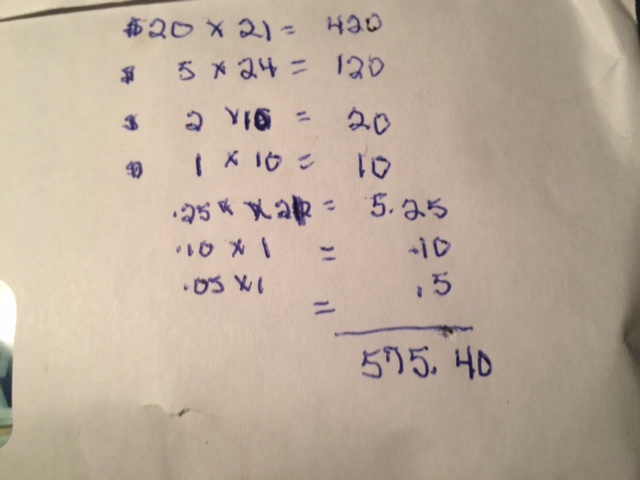 $20 × 21 = 420
$ 5 × 24 = 120
$ 2 × 10 = 20
$ 1 × 10 = 10
.25 × 21 = 5.25
.10 × 1 = .10
.05 × 1 = .5
575.40